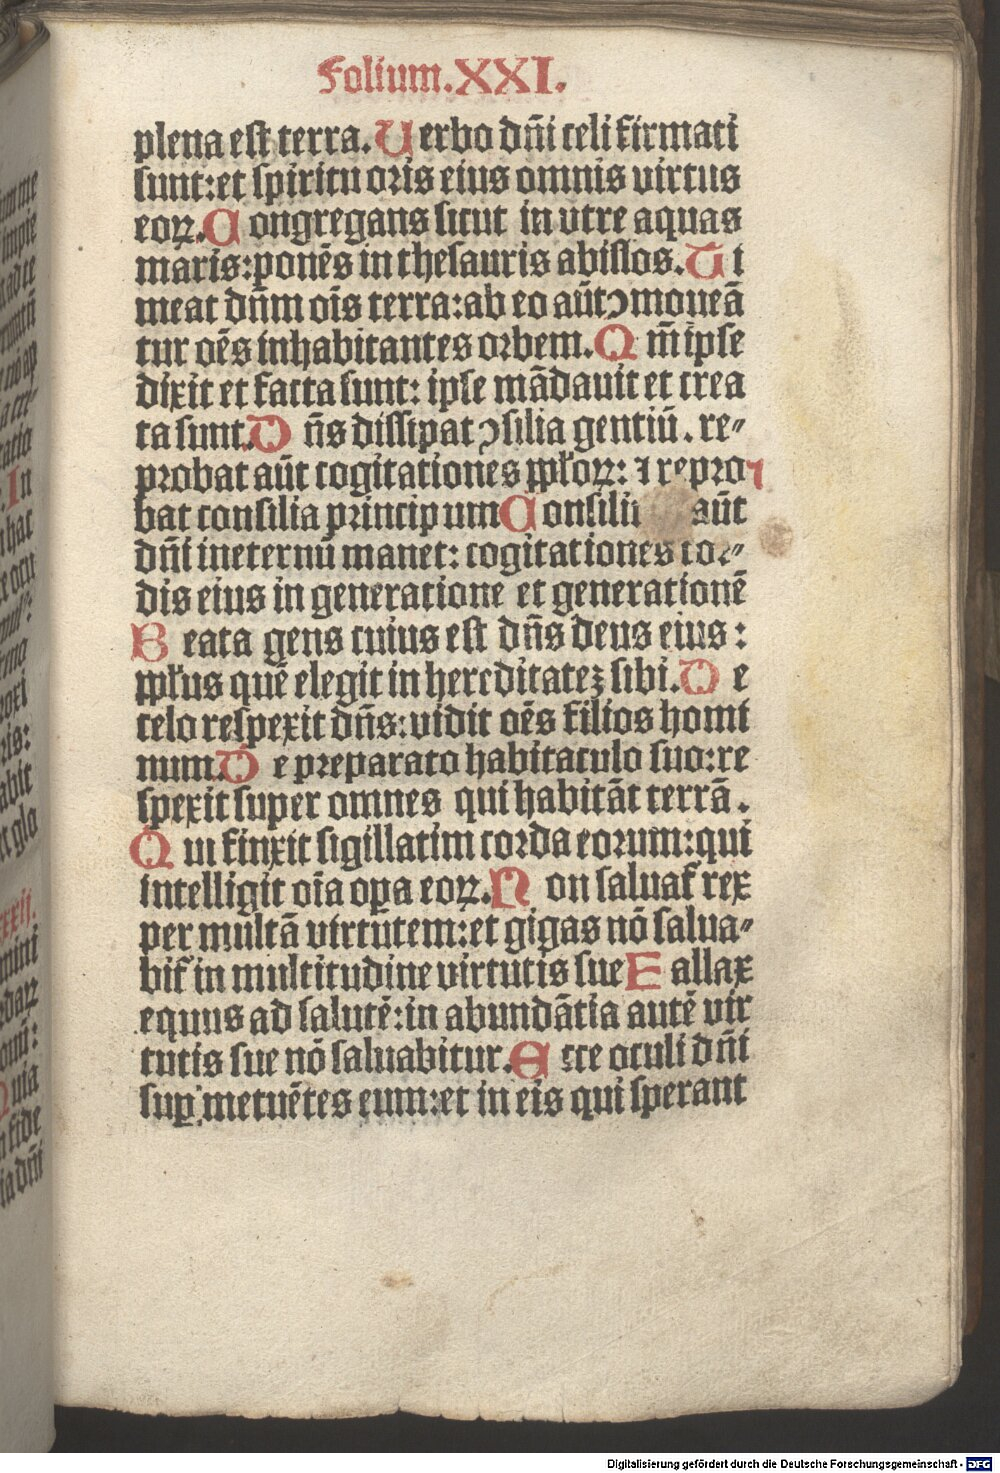 Folium.XXI.
plena est terra. Uerbo dñi celi firmati
sunt: et spiritu oris eius omnis virtus
eoꝝ. Congregans sicut in utre aquas
maris: ponẽs in thesauris abissos. Ti
meat dñm oĩs terra: ab eo aũt ↄmoueã
tur oẽs inhabitantes orbem. Qm̃ ipse
dixit et facta sunt: ipse mãdauit et crea
ta sunt. Dñs dissipat ↄsilia gentiũ. re⸗
probat aũt cogitationes ppľoꝝ: ⁊ repro
bat consilia principum Consiliu aũt
dñi in eternũ manet: cogitationes cor⸗
dis eius in generatione et generationẽ
Beata gens cuius est dñs deus eius:
ppľus quẽ elegit in hereditateꝫ sibi. De
celo respexit dñs: vidit oẽs filios homi
num. De preparato habitaculo suo: re
spexit super omnes qui habitãt terrã.
Qui finxit sigillatim corda eorum: qui
intelligit oĩa oꝑa eoꝝ. Non saluať rex
per multã virtutem: et gigas nõ salua⸗
biť in multitudine virtutis sue Fallax
equus ad salutẽ: in abundãtia autẽ vir
tutis sue nõ saluabitur. Ecce oculi dñi
suꝑ metuẽtes eum: et in eis qui sperant
Digitalisierung gefördert durch die Deutsche Forschungsgemeinschaft - DFG